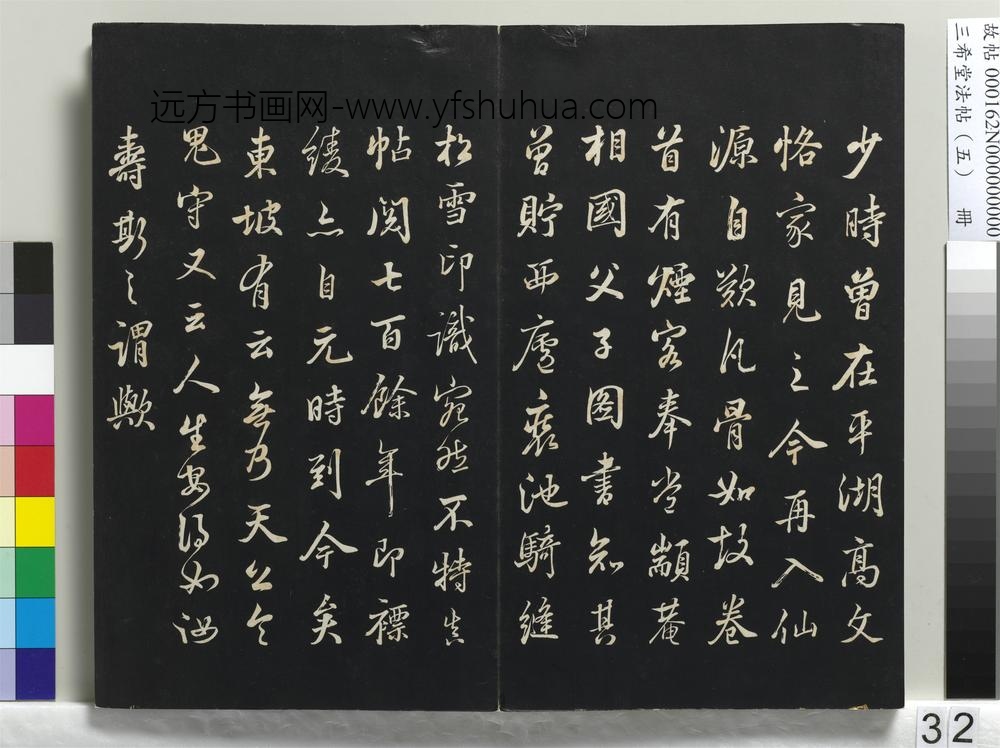 少時曾在平湖高文
恪家見之今再入仙
源自歎凡骨如故卷
首有煙客奉常顓菴
相國父子圖書知其
曾貯西廬裹池騎縫
松雪印識宛然不特真
帖閱七百餘年即褾
綾亦自元時到今矣
東坡有云無乃天公令
鬼守又云人生安得如汝
壽斯之謂歟
远方书画网-www.yfshuhua.com
故帖000162N000000000
三希堂法帖(五) 冊
32